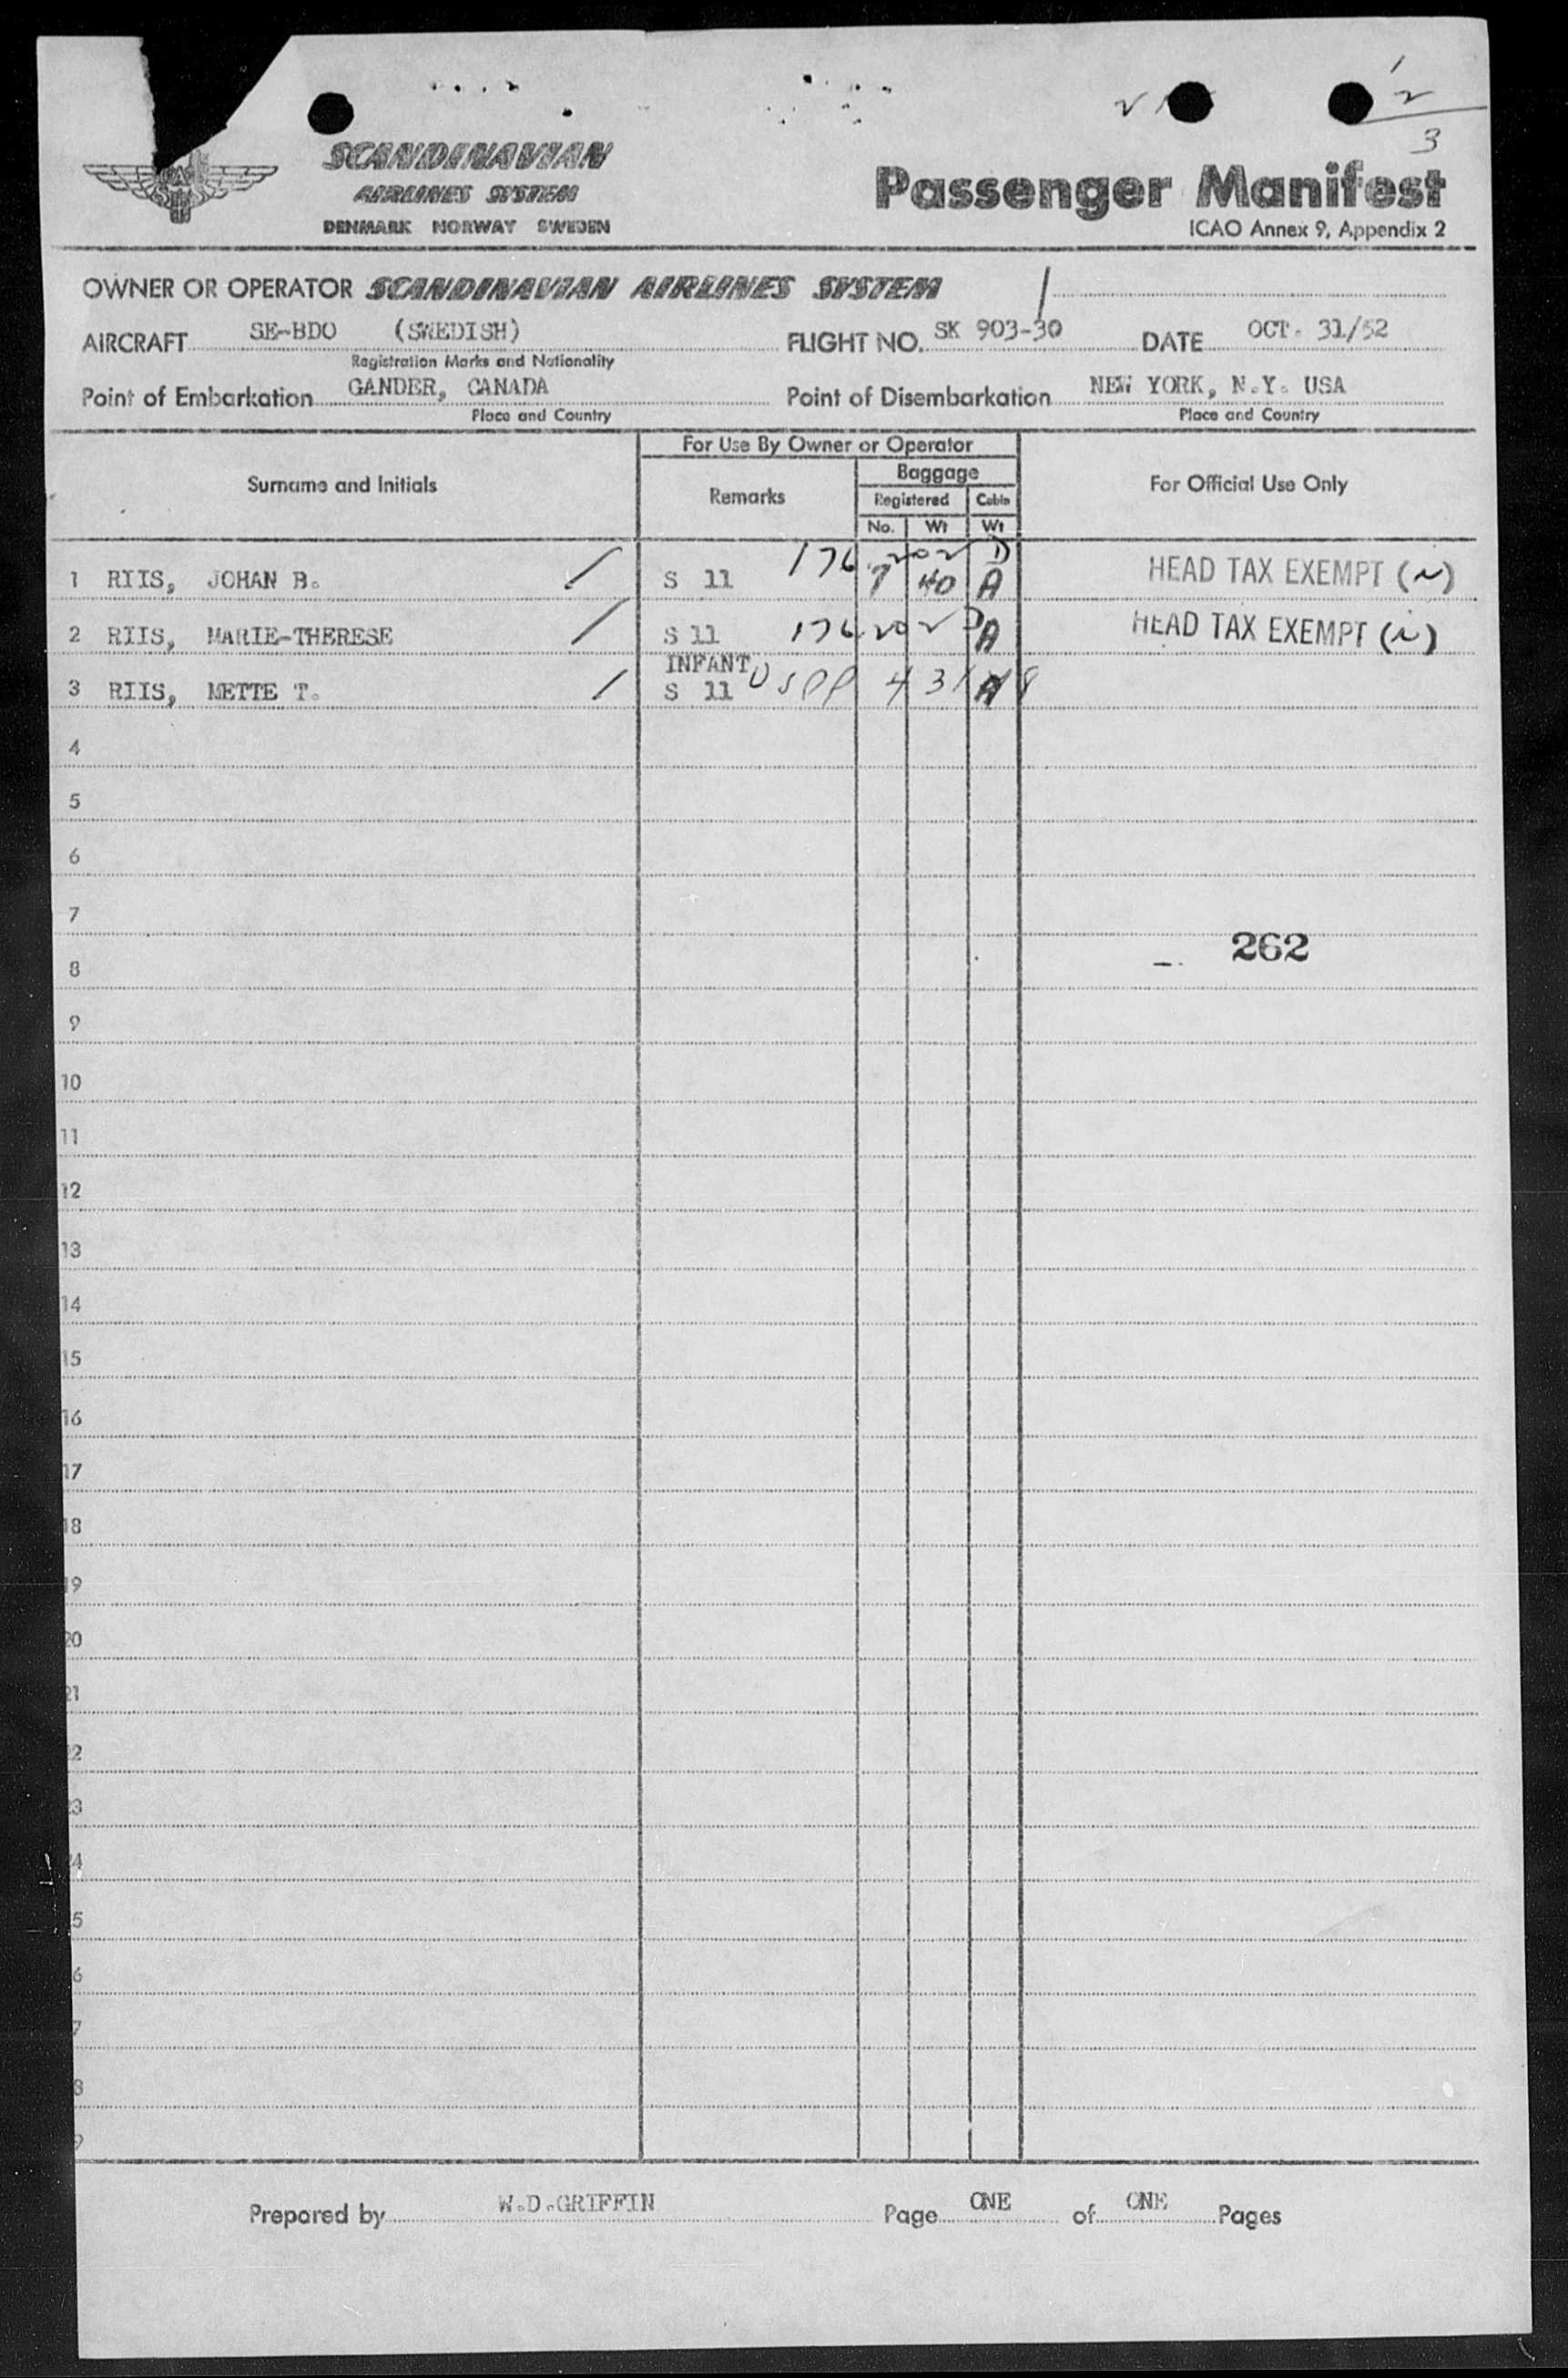 2
3
SCANDINAVIAN
AIRLINES SYSTEM
DENMARK NORWAY SWEDEN
Passenger Manifest
ICAO Annex 9, Appendix 2
OWNER OR OPERATOR SCANDINAVIAN AIRLINES SYSTEM
AIRCRAFT SE-BDO (SWEDISH) FLIGHT NO. SK 903-30 DATE OCT. 31/52
Registration Marks and Nationality
Point of Embarkation GANDER, CANADA Point of Disembarkation NEW YORK, N.Y. USA
Place and Country Place and Country
For Use By Owner or Operator
Surname and Initials Remarks Baggage For Official Use Only
Registered Cabin
No. Wt Wt
176 202 D
1 RIIS, JOHAN B. / S 11 7 40 A HEAD TAX EXEMPT
2 RIIS, MARIE-THERESE / S 11 176 202 D A HEAD TAX EXEMPT
INFANT
3 RIIS, METTE T. / S 11 USPP 431 A 8
4
5
6
7
262
8
9
10
11
12
13
14
15
16
17
18
19
20
21
22
23
24
5
6
7
8
9
Prepared by W.D.GRIFFIN Page ONE of ONE Pages